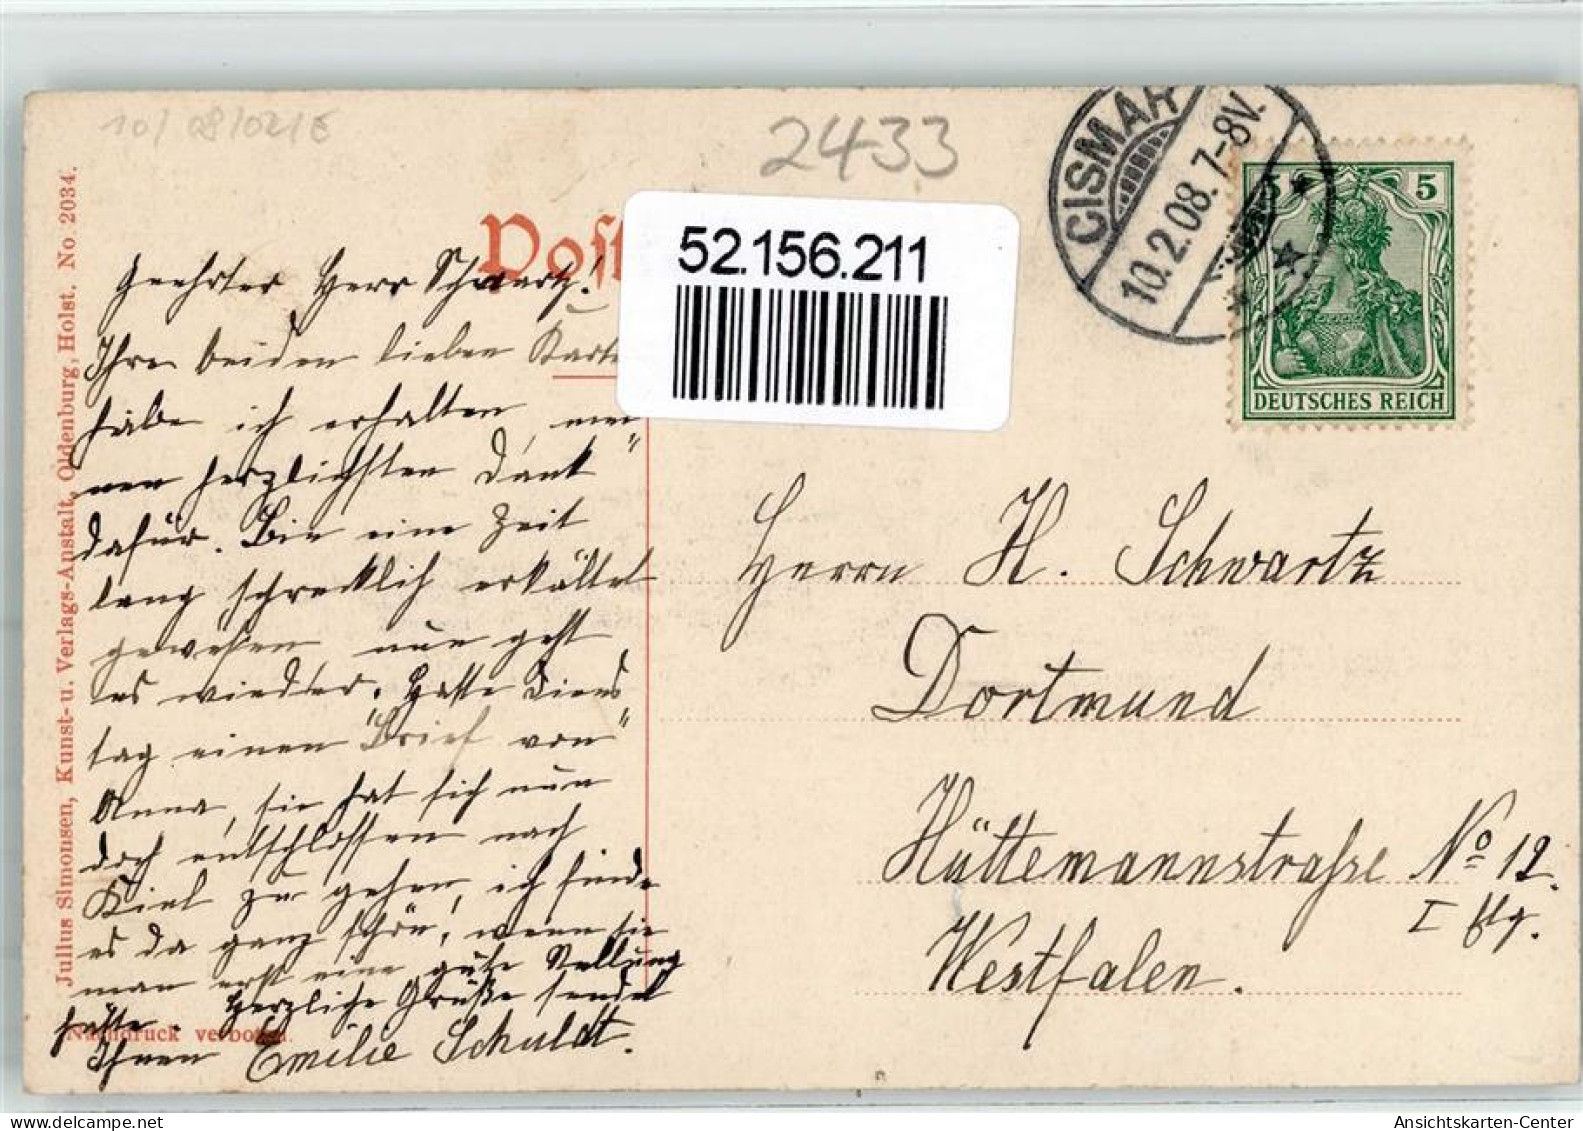 10/ 08/02/E
2433
Post
52.156.211
CISMAR
10.2.08.7-8V.
5 5
DEUTSCHES REICH
Julius Simonsen, Kunst- u. Verlags-Anstalt, Oldenburg, Holst. No. 2034.
Geehrter Herr Schwartz!
Ihre beiden lieben Karte
habe ich erhalten, mei-
nen herzlichsten Dank
dafür. Bin eine Zeit
lang schrecklich erkältet
gewesen nun geht
es wieder. Hatte Diens-
tag einen Brief von
Anna, sie hat sich nun
doch entschlossen nach
Kiel zu gehen, ich finde
es da ganz schön, wenn sie
man erst eine gute Stellung
hätte. Herzliche Grüße sendet
Ihnen Emilie Schuldt.
Nachdruck verboten.
Herrn H. Schwartz
Dortmund
Hüttemannstraße No 12.
I Etg.
Westfalen.
Ansichtskarten-Center